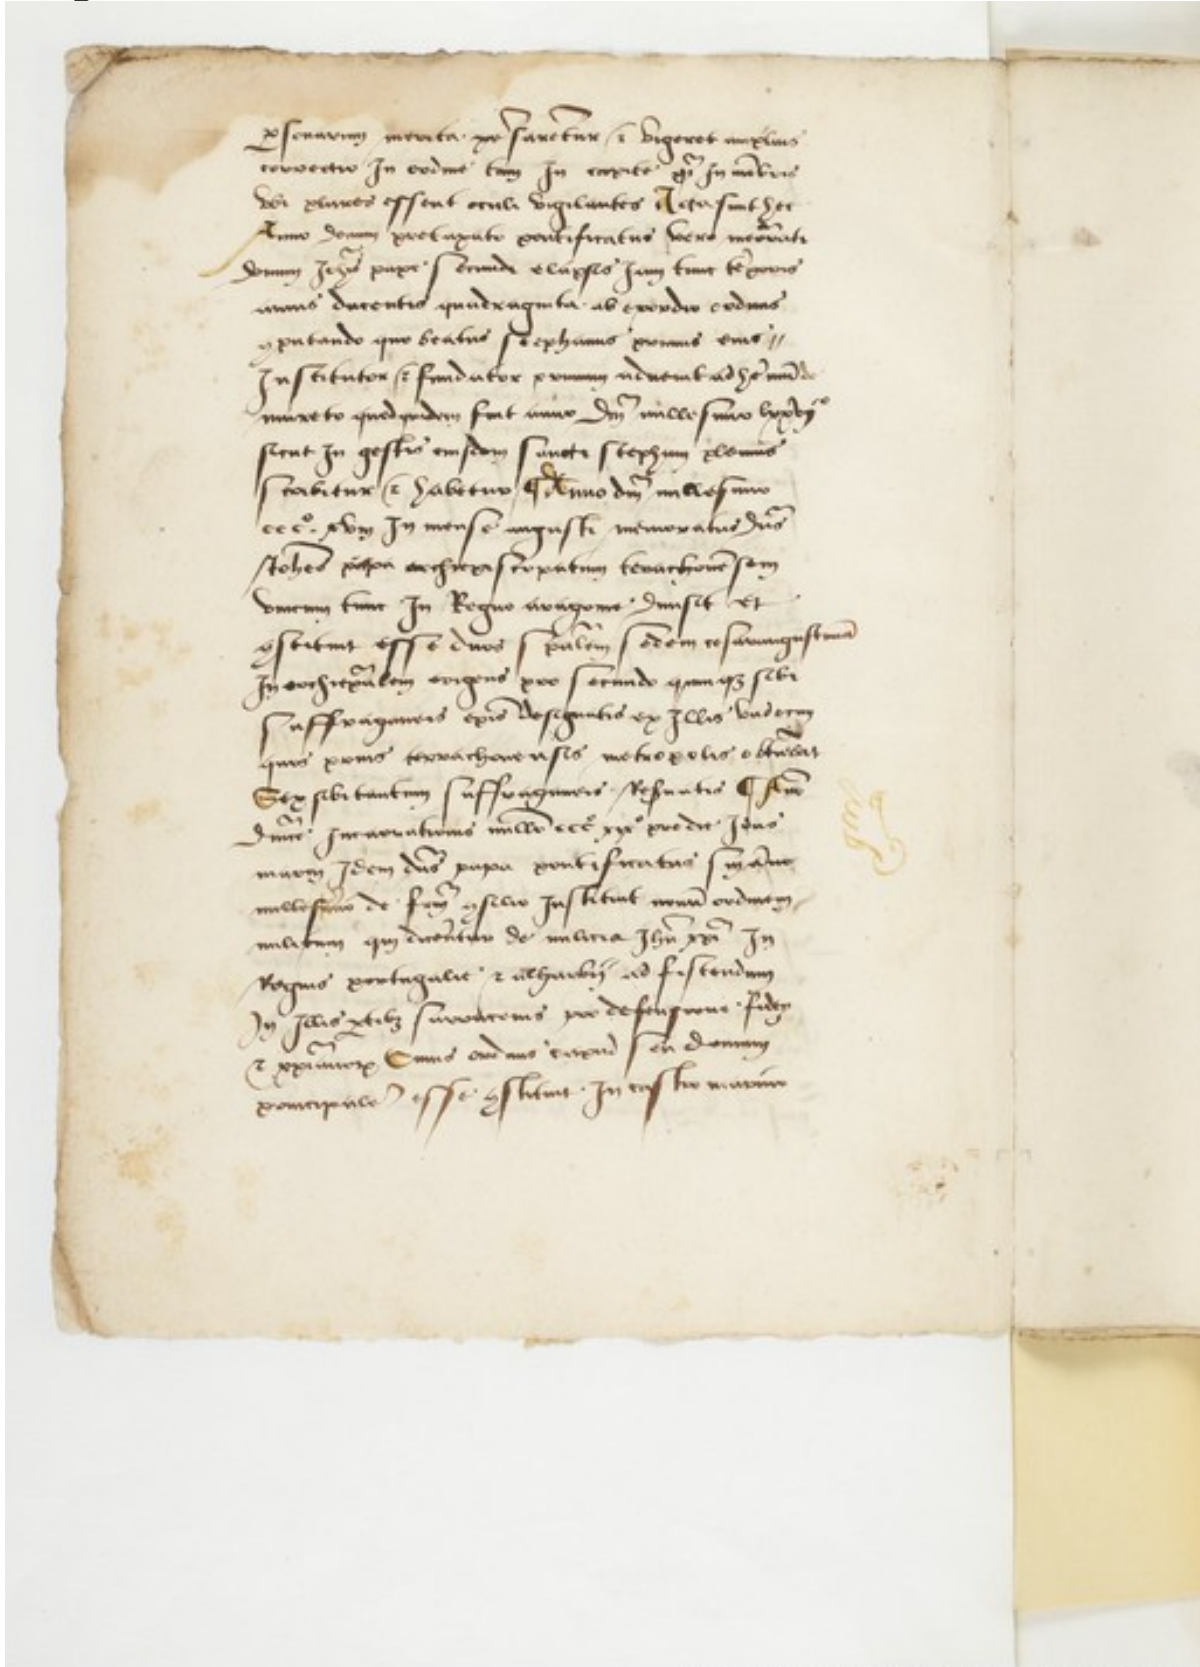 personarum merita pp̄sarētur ⁊ vigeret amplius
correctio In ordine tam In capite q̄ȝ In mēbris
vbi plures essent oculi vigilantes Acta sunt hec
Anno domini prelibato pontificatus vero memorati
domini Joh̄is pape secundi elapsis Jam tunc tēporis
annis ducentis quadraginta ab exordio ordinis
9putando quo beatus stephanus primus eius
Institutor ⁊ fundator primum aduenit ad h̄emū de
mureto quod quidem fuit anno dn̄i millesimo lxxvj°
sicut In gestis eiusdem sancti stephani plenius
scribitur ⁊ habetur ¶ Anno dn̄i millesimo
ccc°. xviij In mense augusti memoratus dn̄s
Joh̄es papa archiepiscopatum terrachonēsem
vnicum tunc In Regno aragonie diuisit et
9stituit esse duos sedem cesaraugustanā
In archiep̄alem erigens pro secundo quinqȝ sibi
suffraganeis ep̄is designatis ex Illis vndecim
quos prius terrachonensis metropolis obtinebat
Sex sibi tantum suffraganeis Reseruatis ¶ Anno
dn̄ice Incarnationis mill̄o ccc° xix° pridie Idus
marcij Idem dn̄s papa pontificatus sui āno
de fr̄m 9silio Instituit nouū ordinem
militum qui dicerentur de milicia Jh̄u xp̄i In
Regnis portugalie ⁊ algarbij ad sistendum
In Illis p̱tibȝ sarracenis pro defensione fidei
⁊ xp̄ianorȝ Cuius ordinis caput seu domum
principalē esse 9stituit In castro marino